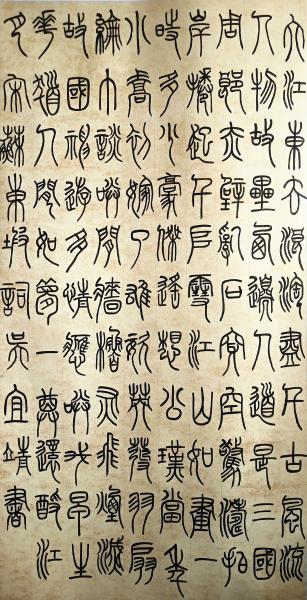 大江東去浪淘盡千古風流
人物故壘西邊人道是三國
周郎赤壁亂石穿空驚濤拍
岸捲起千堆雪江山如畫一
時多少豪傑遙想公瑾當年
小喬初嫁了雄姿英發羽扇
綸巾談笑間牆櫓灰飛煙滅
故國神遊多情應笑我早生
華髮人間如夢一尊還酹江
月宋蘇東坡詞吳宜靖書